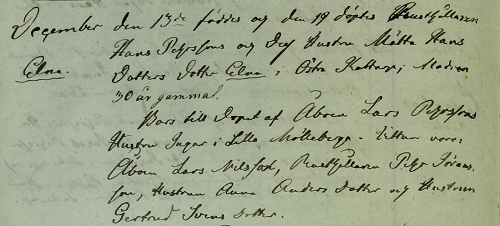 December den 13de föddes og den 19 döptes Hustjellaren
Hans Pehrssons og dess Hustru Mätta Hans
Elna. Dotters Dotter Elna i Östra Kattarp; Modren
30 år gammal.
Bars till Dopet af Åboen Lars Pehrssons
Hustru Ingar i Lilla Mölleberga. Vittnen voro:
Åboen Lars Nilsson, Rusthållaren Pehr Jöns-
son, Hustrun Anna Anders Dotter og Hustrun
Gertrud Svens Dotter.